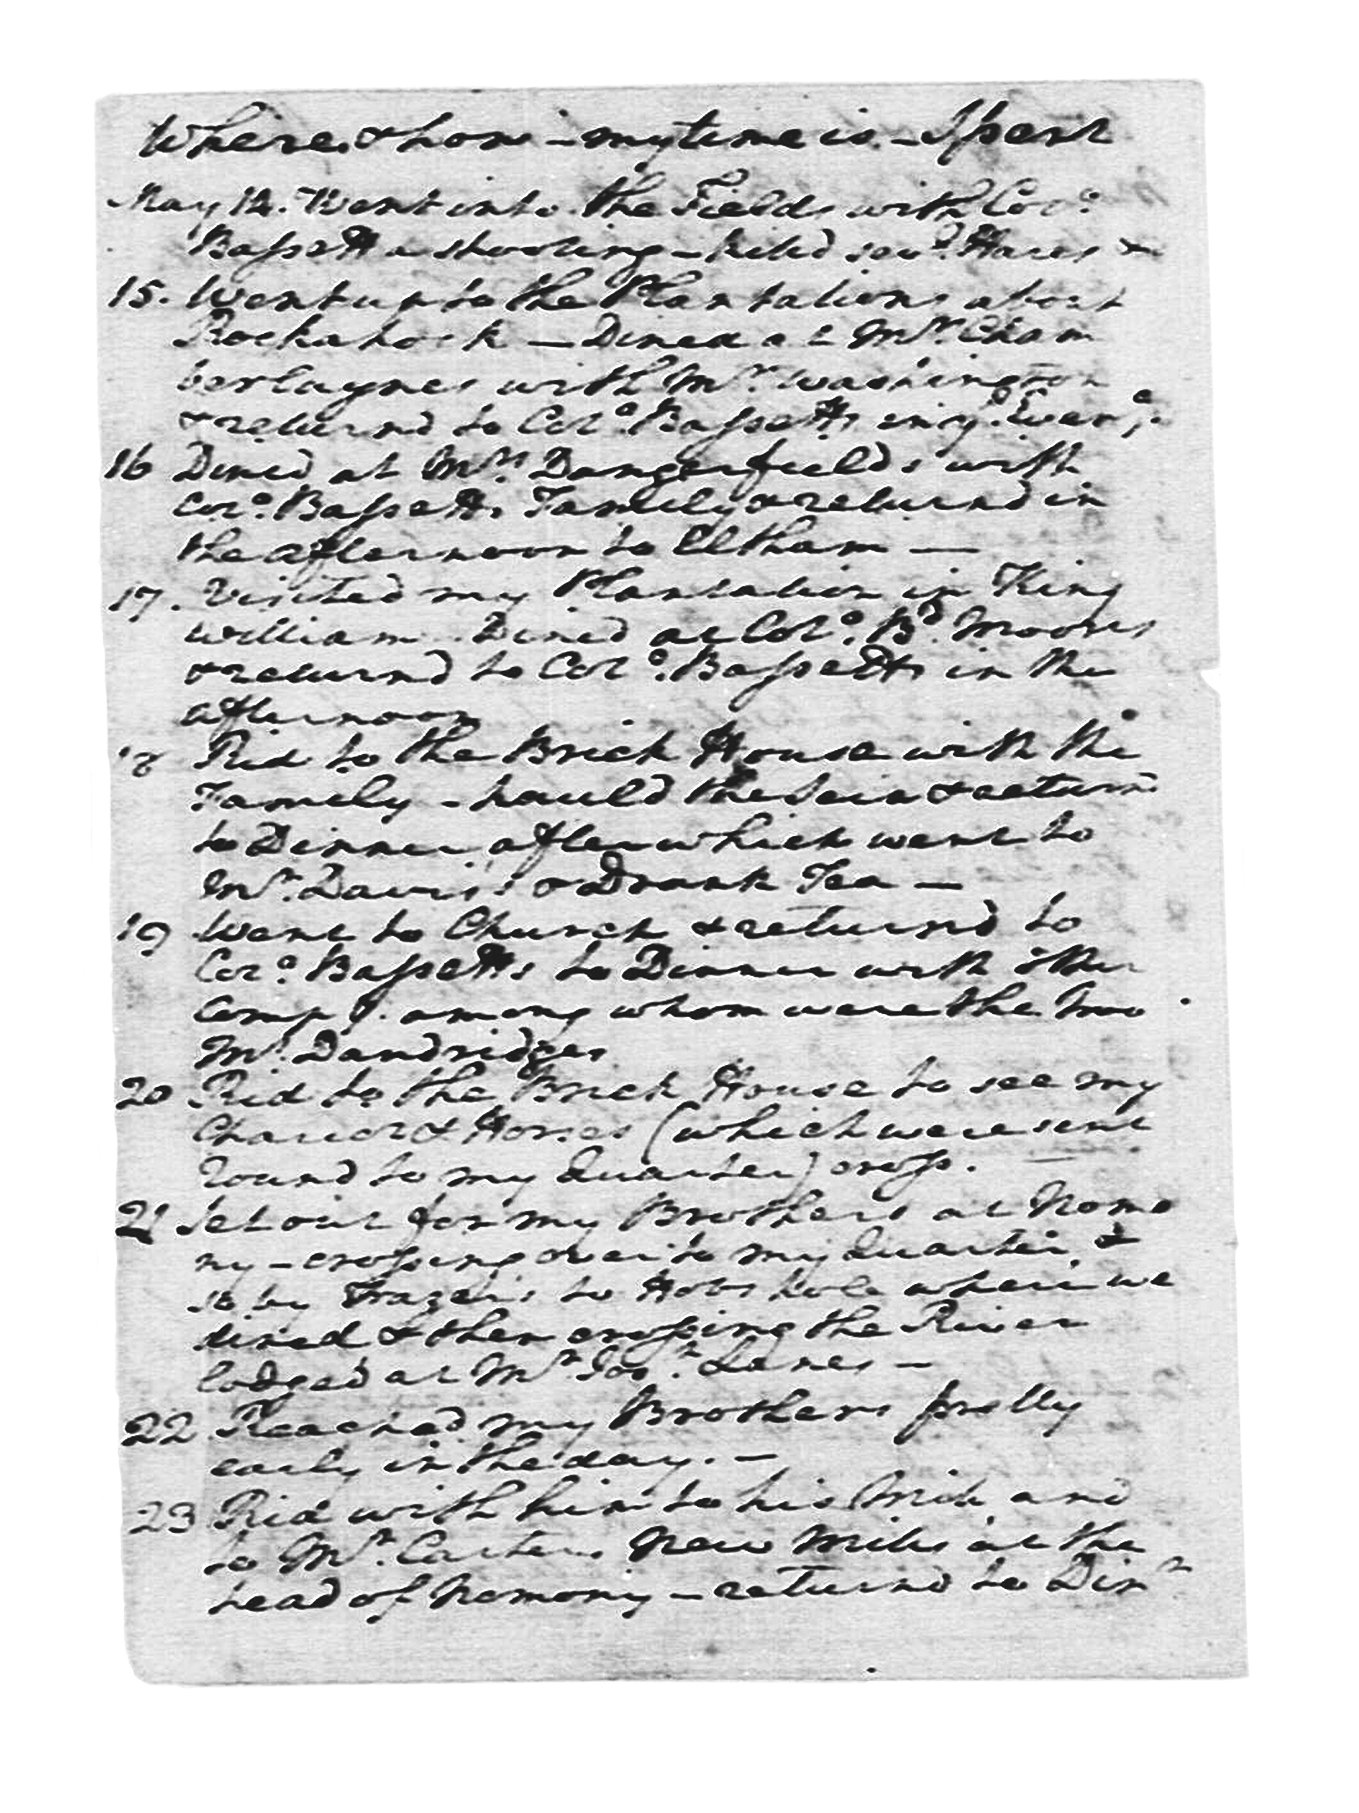 Where, & how - my time is - Spent
May 14. Went into the Fields with Colo.
Bassett a shooting - killd sevl. Hares &
15. Went up to the Plantations about
Rockahock — Dined at Mr. Cham
berlaynes with Mr. Washington
& returnd to Colo. Bassetts in ye. Eveng.
16 Dined at Mrs. Dangerfields with
Colo. Bassetts Family & returnd in
the afternoon to Eltham —
17. Visited my Plantation in King
William. Dined at Colo. Bd. Moores
& returnd to Colo. Bassetts in the
afternoon
18 Rid to the Brick House with the
Family - hauld the Sein & returnd
to Dinner after which went to
Mr. Davis's & Drank Tea —
19 Went to Church & returnd to
Colo. Bassetts to Dinner with other
Compy. among whom were the two
Mr. Dandridges
20 Rid to the Brick House to see my
Chariot & Horses (which were sent
round to my Quarter) cross. —
21 Set out for my Brothers at Nomo
ny - crossing over to my Quarter &
so by Frazers to Hobs hole where we
dined & then crossing the River
lodged at Mr. Josh. Lanes —
22 Reached my Brothers pretty
early in the day. —
23 Rid with him to his Mill, and
to Mr. Carters New Mills at the
head of Nomony - returnd to Dinr